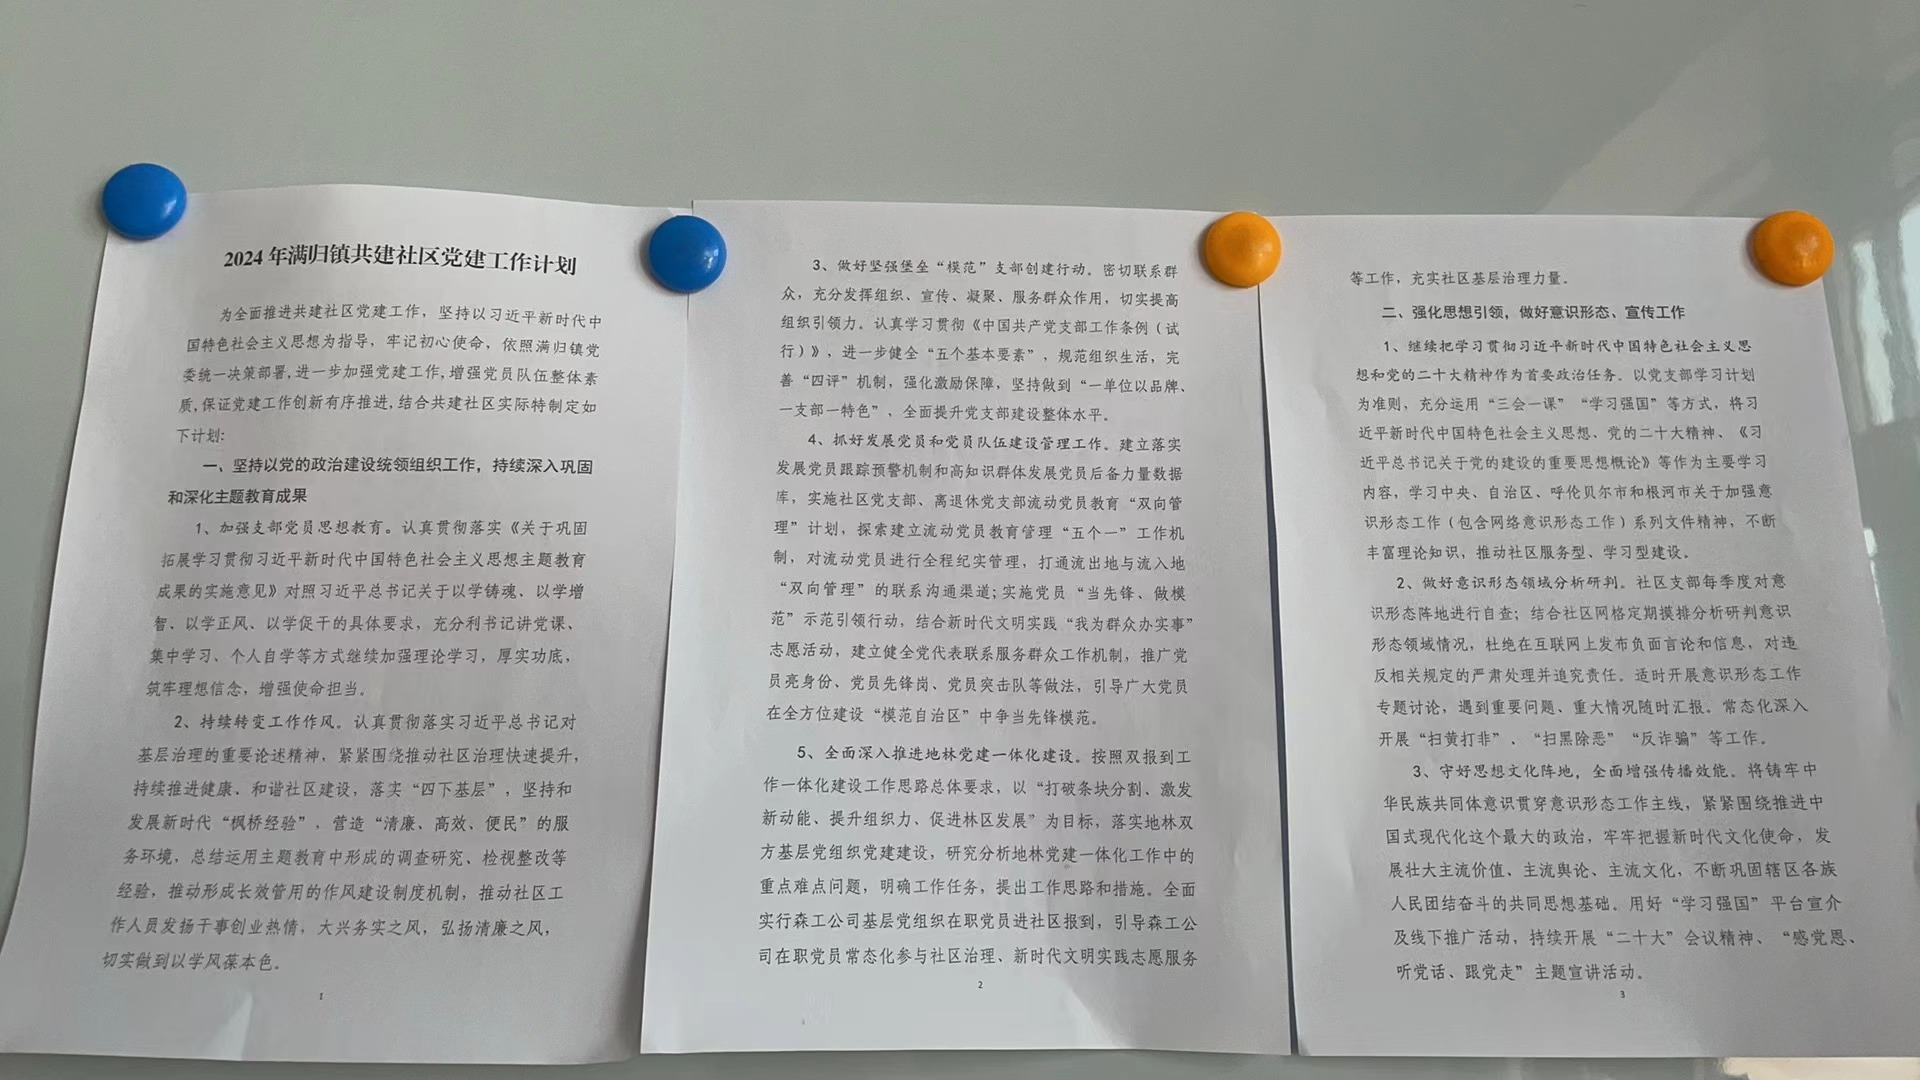 2024年满归镇共建社区党建工作计划
为全面推进共建社区党建工作，坚持以习近平新时代中
国特色社会主义思想为指导，牢记初心使命，依照满归镇党
委统一决策部署,进一步加强党建工作,增强党员队伍整体素
质,保证党建工作创新有序推进,结合共建社区实际特制定如
下计划:
一、坚持以党的政治建设统领组织工作，持续深入巩固
和深化主题教育成果
1、加强支部党员思想教育。认真贯彻落实《关于巩固
拓展学习贯彻习近平新时代中国特色社会主义思想主题教育
成果的实施意见》对照习近平总书记关于以学铸魂、以学增
智、以学正风、以学促干的具体要求，充分利书记讲党课、
集中学习、个人自学等方式继续加强理论学习，厚实功底，
筑牢理想信念，增强使命担当。
2、持续转变工作作风。认真贯彻落实习近平总书记对
基层治理的重要论述精神，紧紧围绕推动社区治理快速提升，
持续推进健康、和谐社区建设，落实“四下基层”，坚持和
发展新时代“枫桥经验”，营造“清廉、高效、便民”的服
务环境，总结运用主题教育中形成的调查研究、检视整改等
经验，推动形成长效管用的作风建设制度机制，推动社区工
作人员发扬干事创业热情，大兴务实之风，弘扬清廉之风，
切实做到以学风葆本色。
1
3、做好坚强堡垒“模范”支部创建行动。密切联系群
众，充分发挥组织、宣传、凝聚、服务群众作用，切实提高
组织引领力。认真学习贯彻《中国共产党支部工作条例（试
行）》，进一步健全“五个基本要素”，规范组织生活，完
善“四评”机制，强化激励保障，坚持做到“一单位以品牌、
一支部一特色”，全面提升党支部建设整体水平。
4、抓好发展党员和党员队伍建设管理工作。建立落实
发展党员跟踪预警机制和高知识群体发展党员后备力量数据
库，实施社区党支部、离退休党支部流动党员教育“双向管
理”计划，探索建立流动党员教育管理“五个一”工作机
制，对流动党员进行全程纪实管理，打通流出地与流入地
“双向管理”的联系沟通渠道;实施党员“当先锋、做模
范”示范引领行动，结合新时代文明实践“我为群众办实事”
志愿活动，建立健全党代表联系服务群众工作机制，推广党
员亮身份、党员先锋岗、党员突击队等做法，引导广大党员
在全方位建设“模范自治区”中争当先锋模范。
5、全面深入推进地林党建一体化建设。按照双报到工
作一体化建设工作思路总体要求，以“打破条块分割、激发
新动能、提升组织力、促进林区发展”为目标，落实地林双
方基层党组织党建建设，研究分析地林党建一体化工作中的
重点难点问题，明确工作任务，提出工作思路和措施。全面
实行森工公司基层党组织在职党员进社区报到，引导森工公
司在职党员常态化参与社区治理、新时代文明实践志愿服务
2
等工作，充实社区基层治理力量。
二、强化思想引领，做好意识形态、宣传工作
1、继续把学习贯彻习近平新时代中国特色社会主义思
想和党的二十大精神作为首要政治任务。以党支部学习计划
为准则，充分运用“三会一课”“学习强国”等方式，将习
近平新时代中国特色社会主义思想、党的二十大精神、《习
近平总书记关于党的建设的重要思想概论》等作为主要学习
内容，学习中央、自治区、呼伦贝尔市和根河市关于加强意
识形态工作（包含网络意识形态工作）系列文件精神，不断
丰富理论知识，推动社区服务型、学习型建设。
2、做好意识形态领域分析研判。社区支部每季度对意
识形态阵地进行自查；结合社区网格定期摸排分析研判意识
形态领域情况，杜绝在互联网上发布负面言论和信息，对违
反相关规定的严肃处理并追究责任。适时开展意识形态工作
专题讨论，遇到重要问题、重大情况随时汇报。常态化深入
开展“扫黄打非”、“扫黑除恶”“反诈骗”等工作。
3、守好思想文化阵地，全面增强传播效能。将铸牢中
华民族共同体意识贯穿意识形态工作主线，紧紧围绕推进中
国式现代化这个最大的政治，牢牢把握新时代文化使命，发
展壮大主流价值、主流舆论、主流文化，不断巩固辖区各族
人民团结奋斗的共同思想基础。用好“学习强国”平台宣介
及线下推广活动，持续开展“二十大”会议精神、“感党恩、
听党话、跟党走”主题宣讲活动。
3